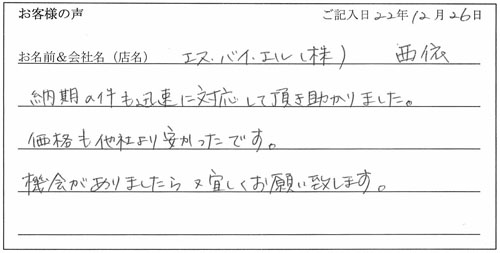 お客様の声 ご記入日 22年 12月 26日
お名前&会社名(店名) エス・バイ・エル(株) 西依
納期の件も迅速に対応して頂き助かりました。
価格も他社より安かったです。
機会がありましたら又宜しくお願い致します。